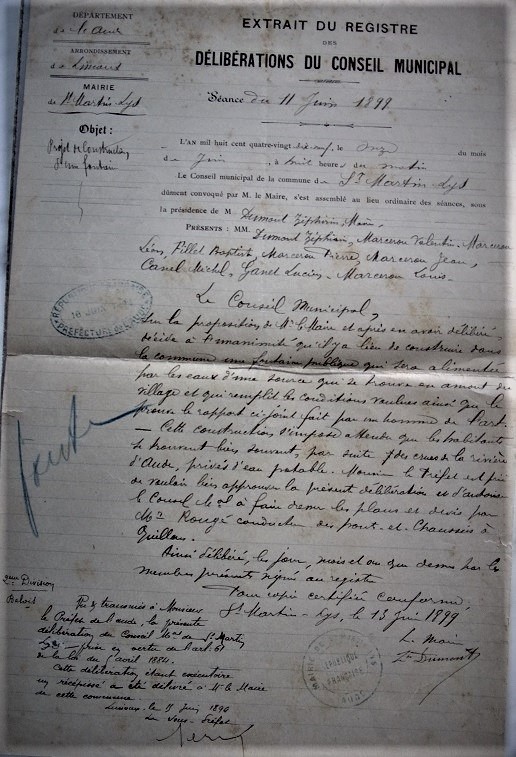 DÉPARTEMENT
de l'Aude
ARRONDISSEMENT
de Limoux
MAIRIE
de St Martin-Lys
Objet :
Projet de Construction
d'une fontaine
EXTRAIT DU REGISTRE
DES
DÉLIBÉRATIONS DU CONSEIL MUNICIPAL
Séance du 11 Juin 1899
L'AN mil huit cent quatre-vingt dix-neuf, le onze du mois
de Juin, à huit heures du matin
Le Conseil municipal de la commune de St Martin-Lys
dûment convoqué par M. le Maire, s'est assemblé au lieu ordinaire des séances, sous
la présidence de M. Dumont Zéphirin, Maire
PRÉSENTS : MM. Dumont Zéphirin, Marceron Valentin - Marceron
Léon, Pillet Baptiste, Marceron Pierre, Marceron Jean,
Canel Michel, Ganet Lucien - Marceron Louis -
Le Conseil Municipal,
Sur la proposition de Mr le Maire et après en avoir délibéré,
décide à l'unanimité qu'il y a lieu de construire dans
la commune une fontaine publique qui sera alimentée
par les eaux d'une source qui se trouve en amont du
village et qui remplit les conditions voulues ainsi que le
prouve le rapport ci-joint fait par un homme de l'art.
— Cette construction s'impose attendu que les habitants
se trouvent bien souvent, par suite des crues de la rivière
d'Aude, privés d'eau potable. Monsieur le Préfet est prié
de vouloir bien approuver la présente délibération et d'autoriser
le Conseil Mal à faire dresser les plans et devis par
Mr Rougé conducteur des Ponts-et-Chaussées à
Quillan.
Ainsi délibéré, les jour, mois et an que dessus par les
membres présents signé au registre
Pour copie certifiée conforme,
St Martin-Lys, le 13 Juin 1899
Le Maire
Z. Dumont
2ème Division
Vu & transmis à Monsieur
le Préfet de l'Aude, la présente
délibération du Conseil Mal de St Martin
Lys prise en vertu de l'art. 61
de la loi du 5 avril 1884.
Cette délibération étant exécutoire
un récépissé a été délivré à Mr le Maire
de cette commune
Limoux, le Juin 1899
Le Sous-Préfet